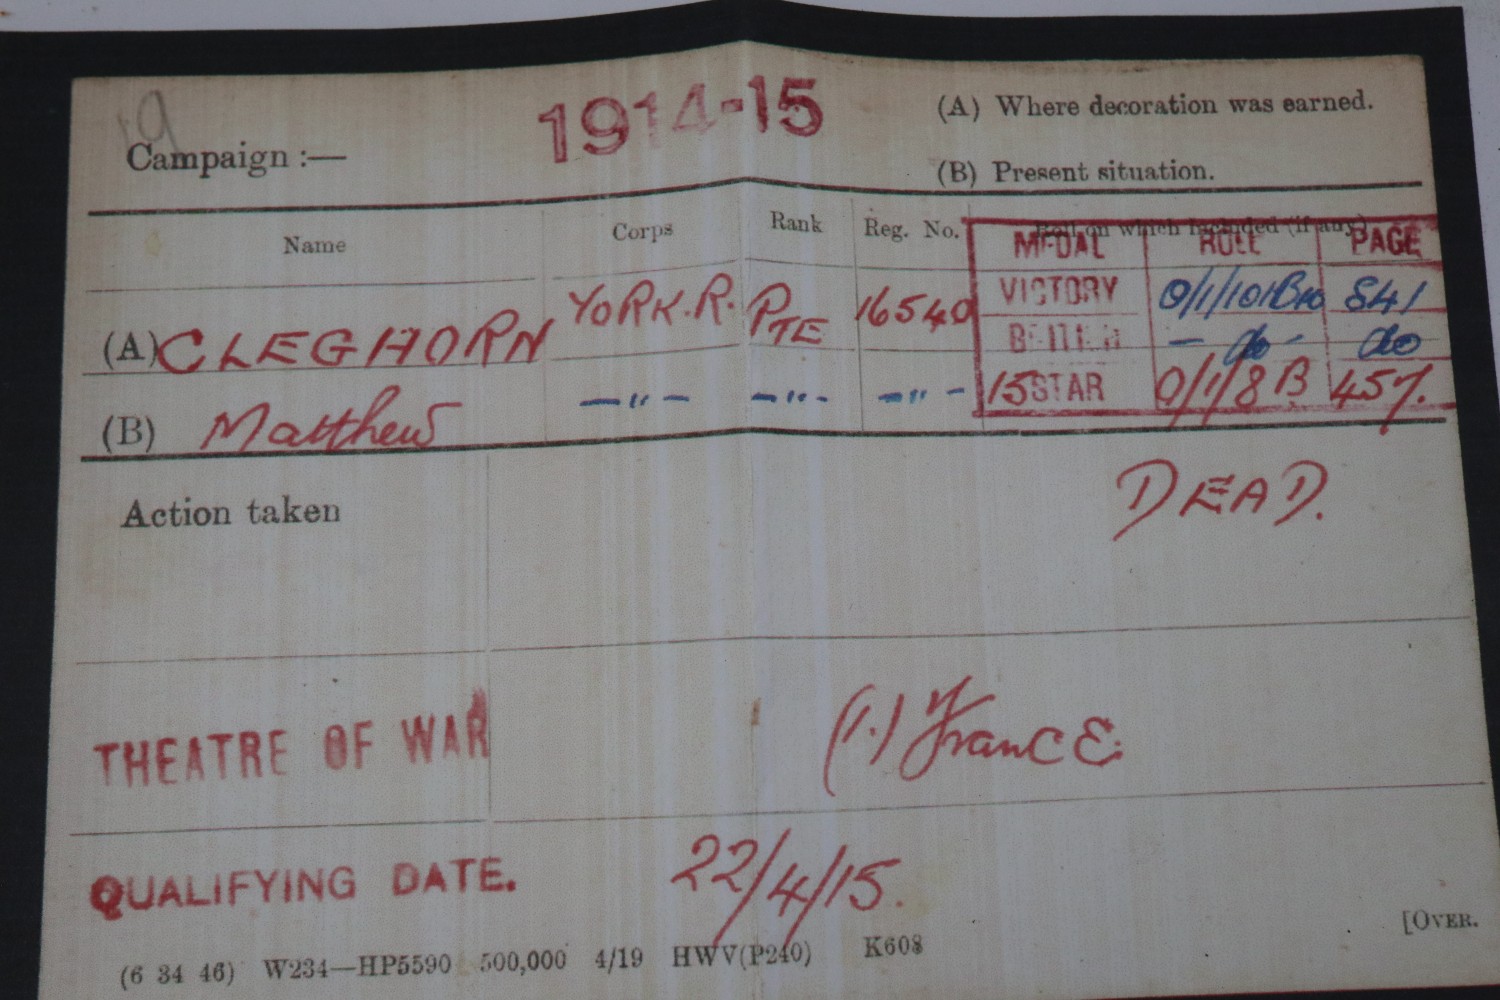 19
Campaign :—
1914-15
(A) Where decoration was earned.
(B) Present situation.
Name Corps Rank Reg. No. Roll on which included (if any)
MEDAL ROLL PAGE
(A) CLEGHORN YORK.R. PTE 16540 VICTORY O/1/101B10 841
BRITISH — do - do
(B) Matthew —"— —"— —"— 15 STAR O/1/8 B 457.
Action taken
DEAD.
THEATRE OF WAR (1.) France.
QUALIFYING DATE. 22/4/15.
(6 34 46) W234—HP5590 500,000 4/19 HWV(P240) K608
[OVER.